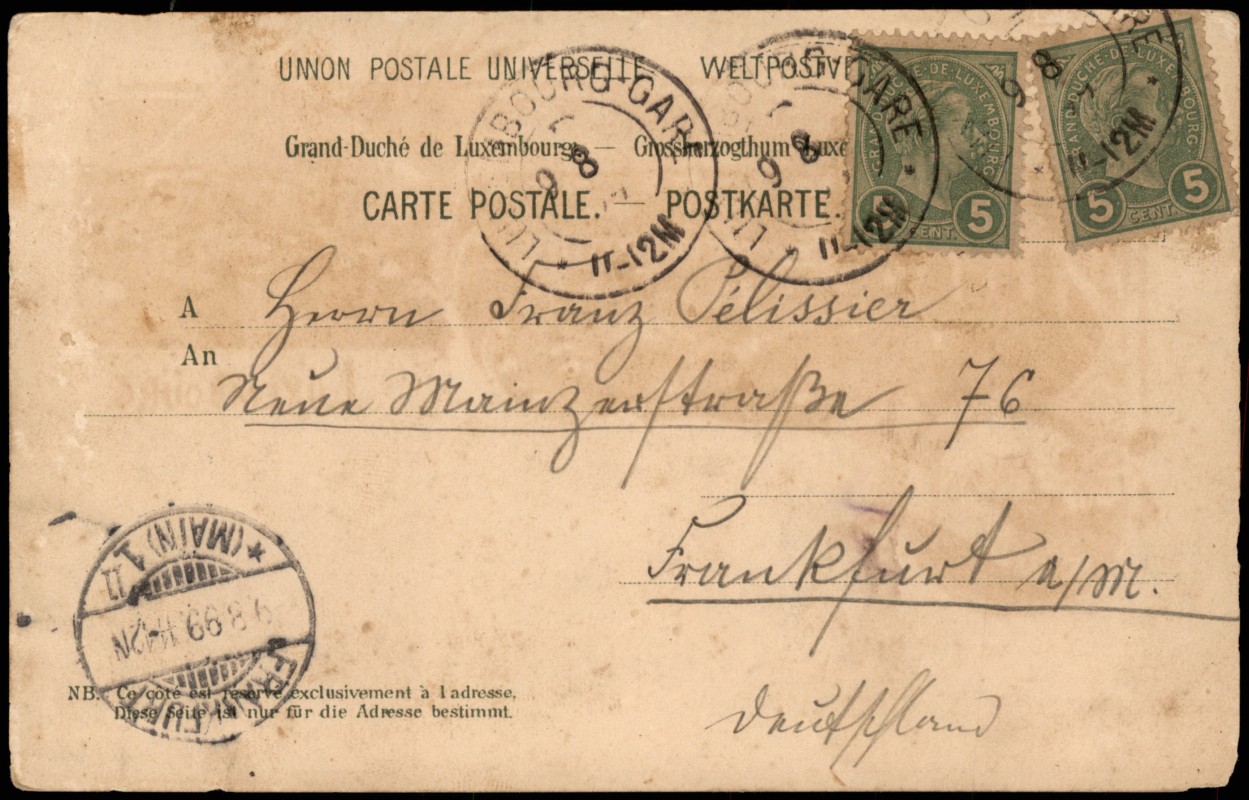 UNION POSTALE UNIVERSELLE WELTPOSTV
Grand-Duché de Luxembourg. — Grossherzogthum Luxe
CARTE POSTALE. — POSTKARTE.
BOURG-GARE
9 8
11-12M
BOURG-GARE
9 8
11-12M
RE
9 8
11-12M
GRAND-DUCHÉ-DE-LUXEMBOURG
5 CENT. 5
GRAND-DUCHÉ-DE-LUXEMBOURG
5 CENT. 5
A
An
Herrn Franz Pélissier
Neue Mainzerstraße 76
Frankfurt a/M.
Deutschland
FRANKFURT
(MAIN) 1
9.8.99. 11-12N
NB. Ce côté est réservé exclusivement à l'adresse.
Diese Seite ist nur für die Adresse bestimmt.